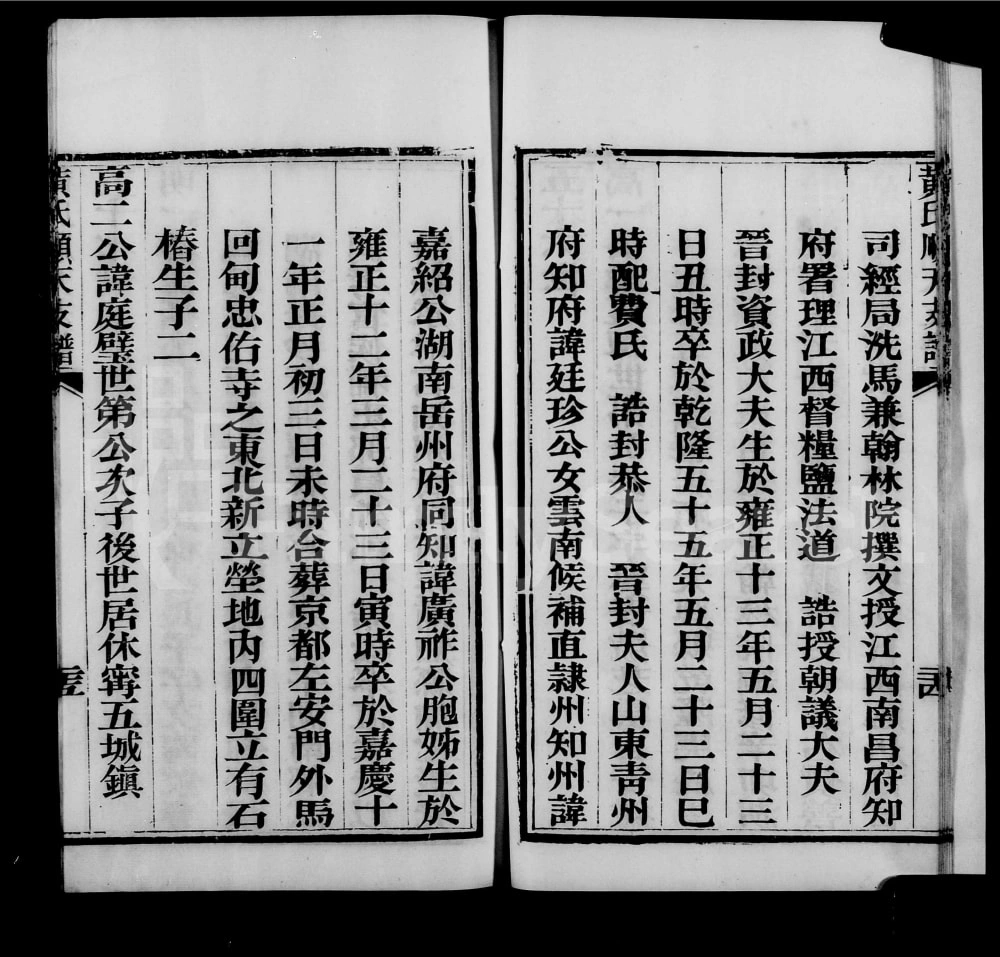 黃氏順天支譜
司經局洗馬兼翰林院撰文授江西南昌府知
府署理江西督糧鹽法道　誥授朝議大夫
晉封資政大夫生於雍正十三年五月二十三
日丑時卒於乾隆五十五年五月二十三日巳
時配費氏　誥封恭人　晉封夫人山東靑州
府知府諱廷珍公女雲南候補直隸州知州諱
嘉紹公湖南岳州府同知諱廣祚公胞姊生於
雍正十二年三月二十三日寅時卒於嘉慶十
一年正月初三日未時合葬京都左安門外馬
回甸忠佑寺之東北新立塋地內四圍立有石
樁生子二
高二公諱庭璧世第公次子後世居休甯五城鎮
黃氏順天支譜